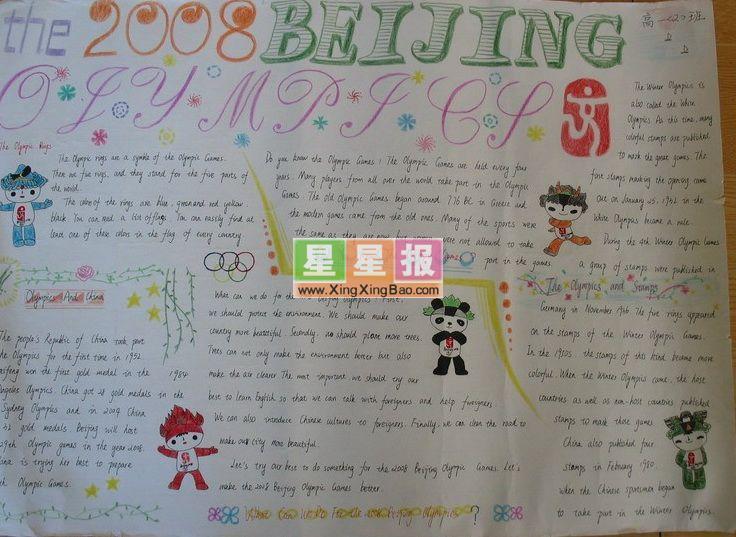 the 2008 BEIJING
OLYMPICS
高一(2)班
The Olympic Rings
The Olympic rings are a symble of the Olympic Games.
There are five rings, and they stand for the five parts of
the world.
The colors of the rings are blue, green and red yellow
black. You can read a list of flags. You can easily find at
least one of these colors in the flag of every country.
Do you know the Olympic Games? The Olympic Games are held every four
years. Many players from all over the world take part in the Olympic
Games. The old Olympic Games began around 776 BC in Greece and
the modern games came from the old ones. Many of the sports were
the same as they are now
were not allowed to take
part in the games.
The Winter Olympics is
also called the White
Olympics. At this time, many
colorful stamps are published
to mark the great games. The
first stamps marking the opening came
out on January 25, 1932 in the
White Olympics became a rule.
During the 4th Winter Olympic Games
a group of stamps were published in
The Olympics and Stamps
Germany in November 1936. The five rings appeared
on the stamps of the Winter Olympic Games.
In the 1950s the stamps of this kind became more
colorful. When the Winter Olympics came, the host
countries as well as non-host countries published
stamps to mark those games.
China also published four
stamps in February 1980
when the Chinese sportsmen began
to take part in the Winter Olympics.
Olympics And China
The people's Republic of China took part
the Olympics for the first time in 1952.
won the first gold medal in the 1984
Angeles Olympics. China got 28 gold medals in the
Sydney Olympics and in 2004 China
gold medals. Beijing will host
29th Olympic games in the year 2008.
China is trying her best to prepare
Olympic Games.
What can we do for the Beijing Olympics? First,
we should protect the environment. We should make our
country more beautiful. Secondly, we should plant more trees.
Trees can not only make the environment better but also
make the air clearer. The most important, we should try our
best to learn English so that we can talk with foreigners and help foreigners.
We can also introduce Chinese cultures to foreigners. Finally, we can clean the road to
make our city more beautiful.
Let's try our best to do something for the 2008 Beijing Olympic Games. Let's
make the 2008 Beijing Olympic Games better.
What Can We Do For the 2008 Beijing Olympics?
星星报
www.XingXingBao.com